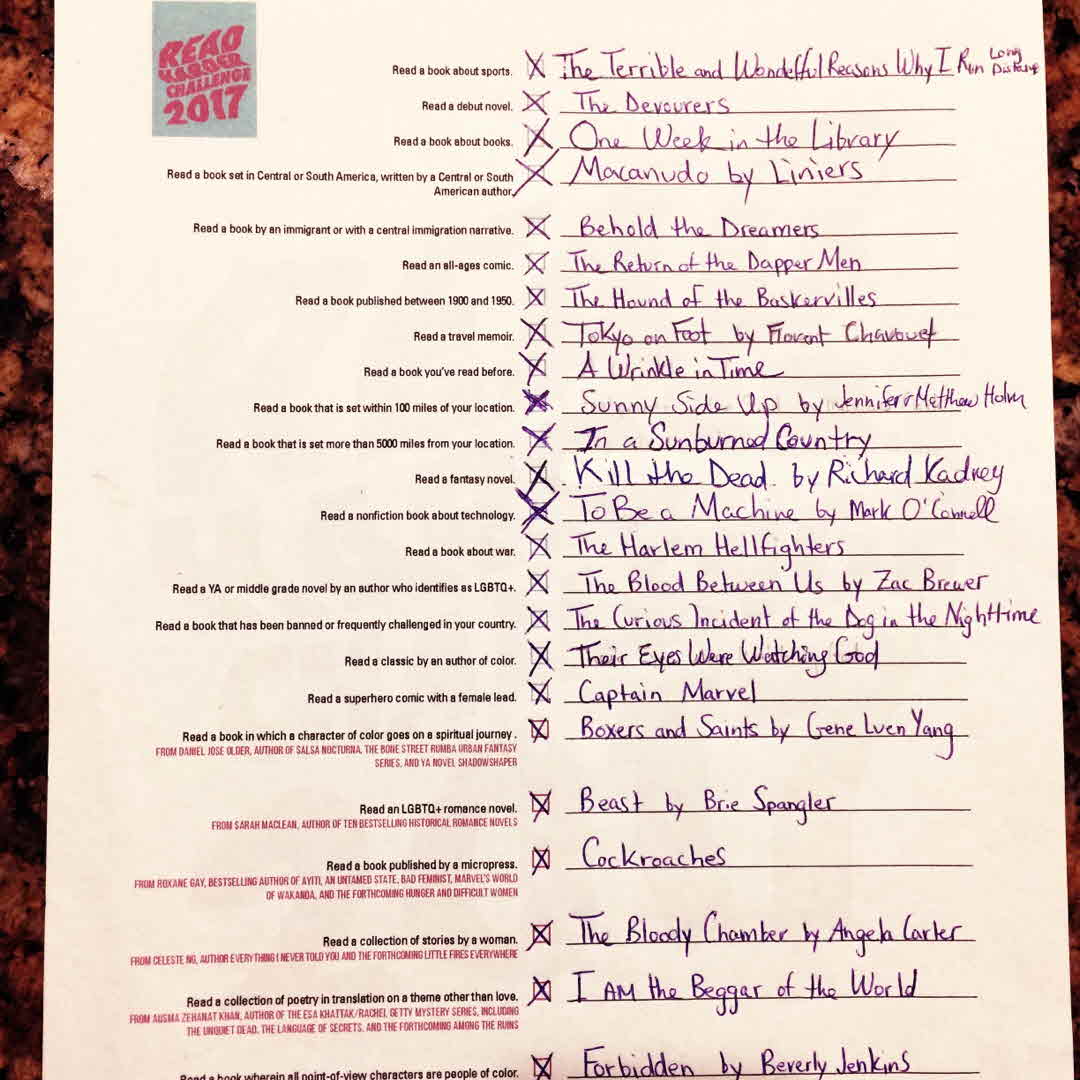 READ
HARDER
CHALLENGE
2017
Read a book about sports. The Terrible and Wonderful Reasons Why I Run Long Distance
Read a debut novel. The Devourers
Read a book about books. One Week in the Library
Read a book set in Central or South America, written by a Central or South
American author. Macanudo by Liniers
Read a book by an immigrant or with a central immigration narrative. Behold the Dreamers
Read an all-ages comic. The Return of the Dapper Men
Read a book published between 1900 and 1950. The Hound of the Baskervilles
Read a travel memoir. Tokyo on Foot by Florent Chavouet
Read a book you've read before. A Wrinkle in Time
Read a book that is set within 100 miles of your location. Sunny Side Up by Jennifer & Matthew Holm
Read a book that is set more than 5000 miles from your location. In a Sunburned Country
Read a fantasy novel. Kill the Dead by Richard Kadrey
Read a nonfiction book about technology. To Be a Machine by Mark O'Connell
Read a book about war. The Harlem Hellfighters
Read a YA or middle grade novel by an author who identifies as LGBTQ+. The Blood Between Us by Zac Brewer
Read a book that has been banned or frequently challenged in your country. The Curious Incident of the Dog in the Nighttime
Read a classic by an author of color. Their Eyes Were Watching God
Read a superhero comic with a female lead. Captain Marvel
Read a book in which a character of color goes on a spiritual journey. Boxers and Saints by Gene Luen Yang
FROM DANIEL JOSE OLDER, AUTHOR OF SALSA NOCTURNA, THE BONE STREET RUMBA URBAN FANTASY
SERIES, AND YA NOVEL SHADOWSHAPER
Read an LGBTQ+ romance novel. Beast by Brie Spangler
FROM SARAH MACLEAN, AUTHOR OF TEN BESTSELLING HISTORICAL ROMANCE NOVELS
Read a book published by a micropress. Cockroaches
FROM ROXANE GAY, BESTSELLING AUTHOR OF AYITI, AN UNTAMED STATE, BAD FEMINIST, MARVEL'S WORLD
OF WAKANDA, AND THE FORTHCOMING HUNGER AND DIFFICULT WOMEN
Read a collection of stories by a woman. The Bloody Chamber by Angela Carter
FROM CELESTE NG, AUTHOR EVERYTHING I NEVER TOLD YOU AND THE FORTHCOMING LITTLE FIRES EVERYWHERE
Read a collection of poetry in translation on a theme other than love. I AM the Beggar of the World
FROM AUSMA ZEHANAT KHAN, AUTHOR OF THE ESA KHATTAK/RACHEL GETTY MYSTERY SERIES, INCLUDING
THE UNQUIET DEAD, THE LANGUAGE OF SECRETS, AND THE FORTHCOMING AMONG THE RUINS
Read a book wherein all point-of-view characters are people of color. Forbidden by Beverly Jenkins